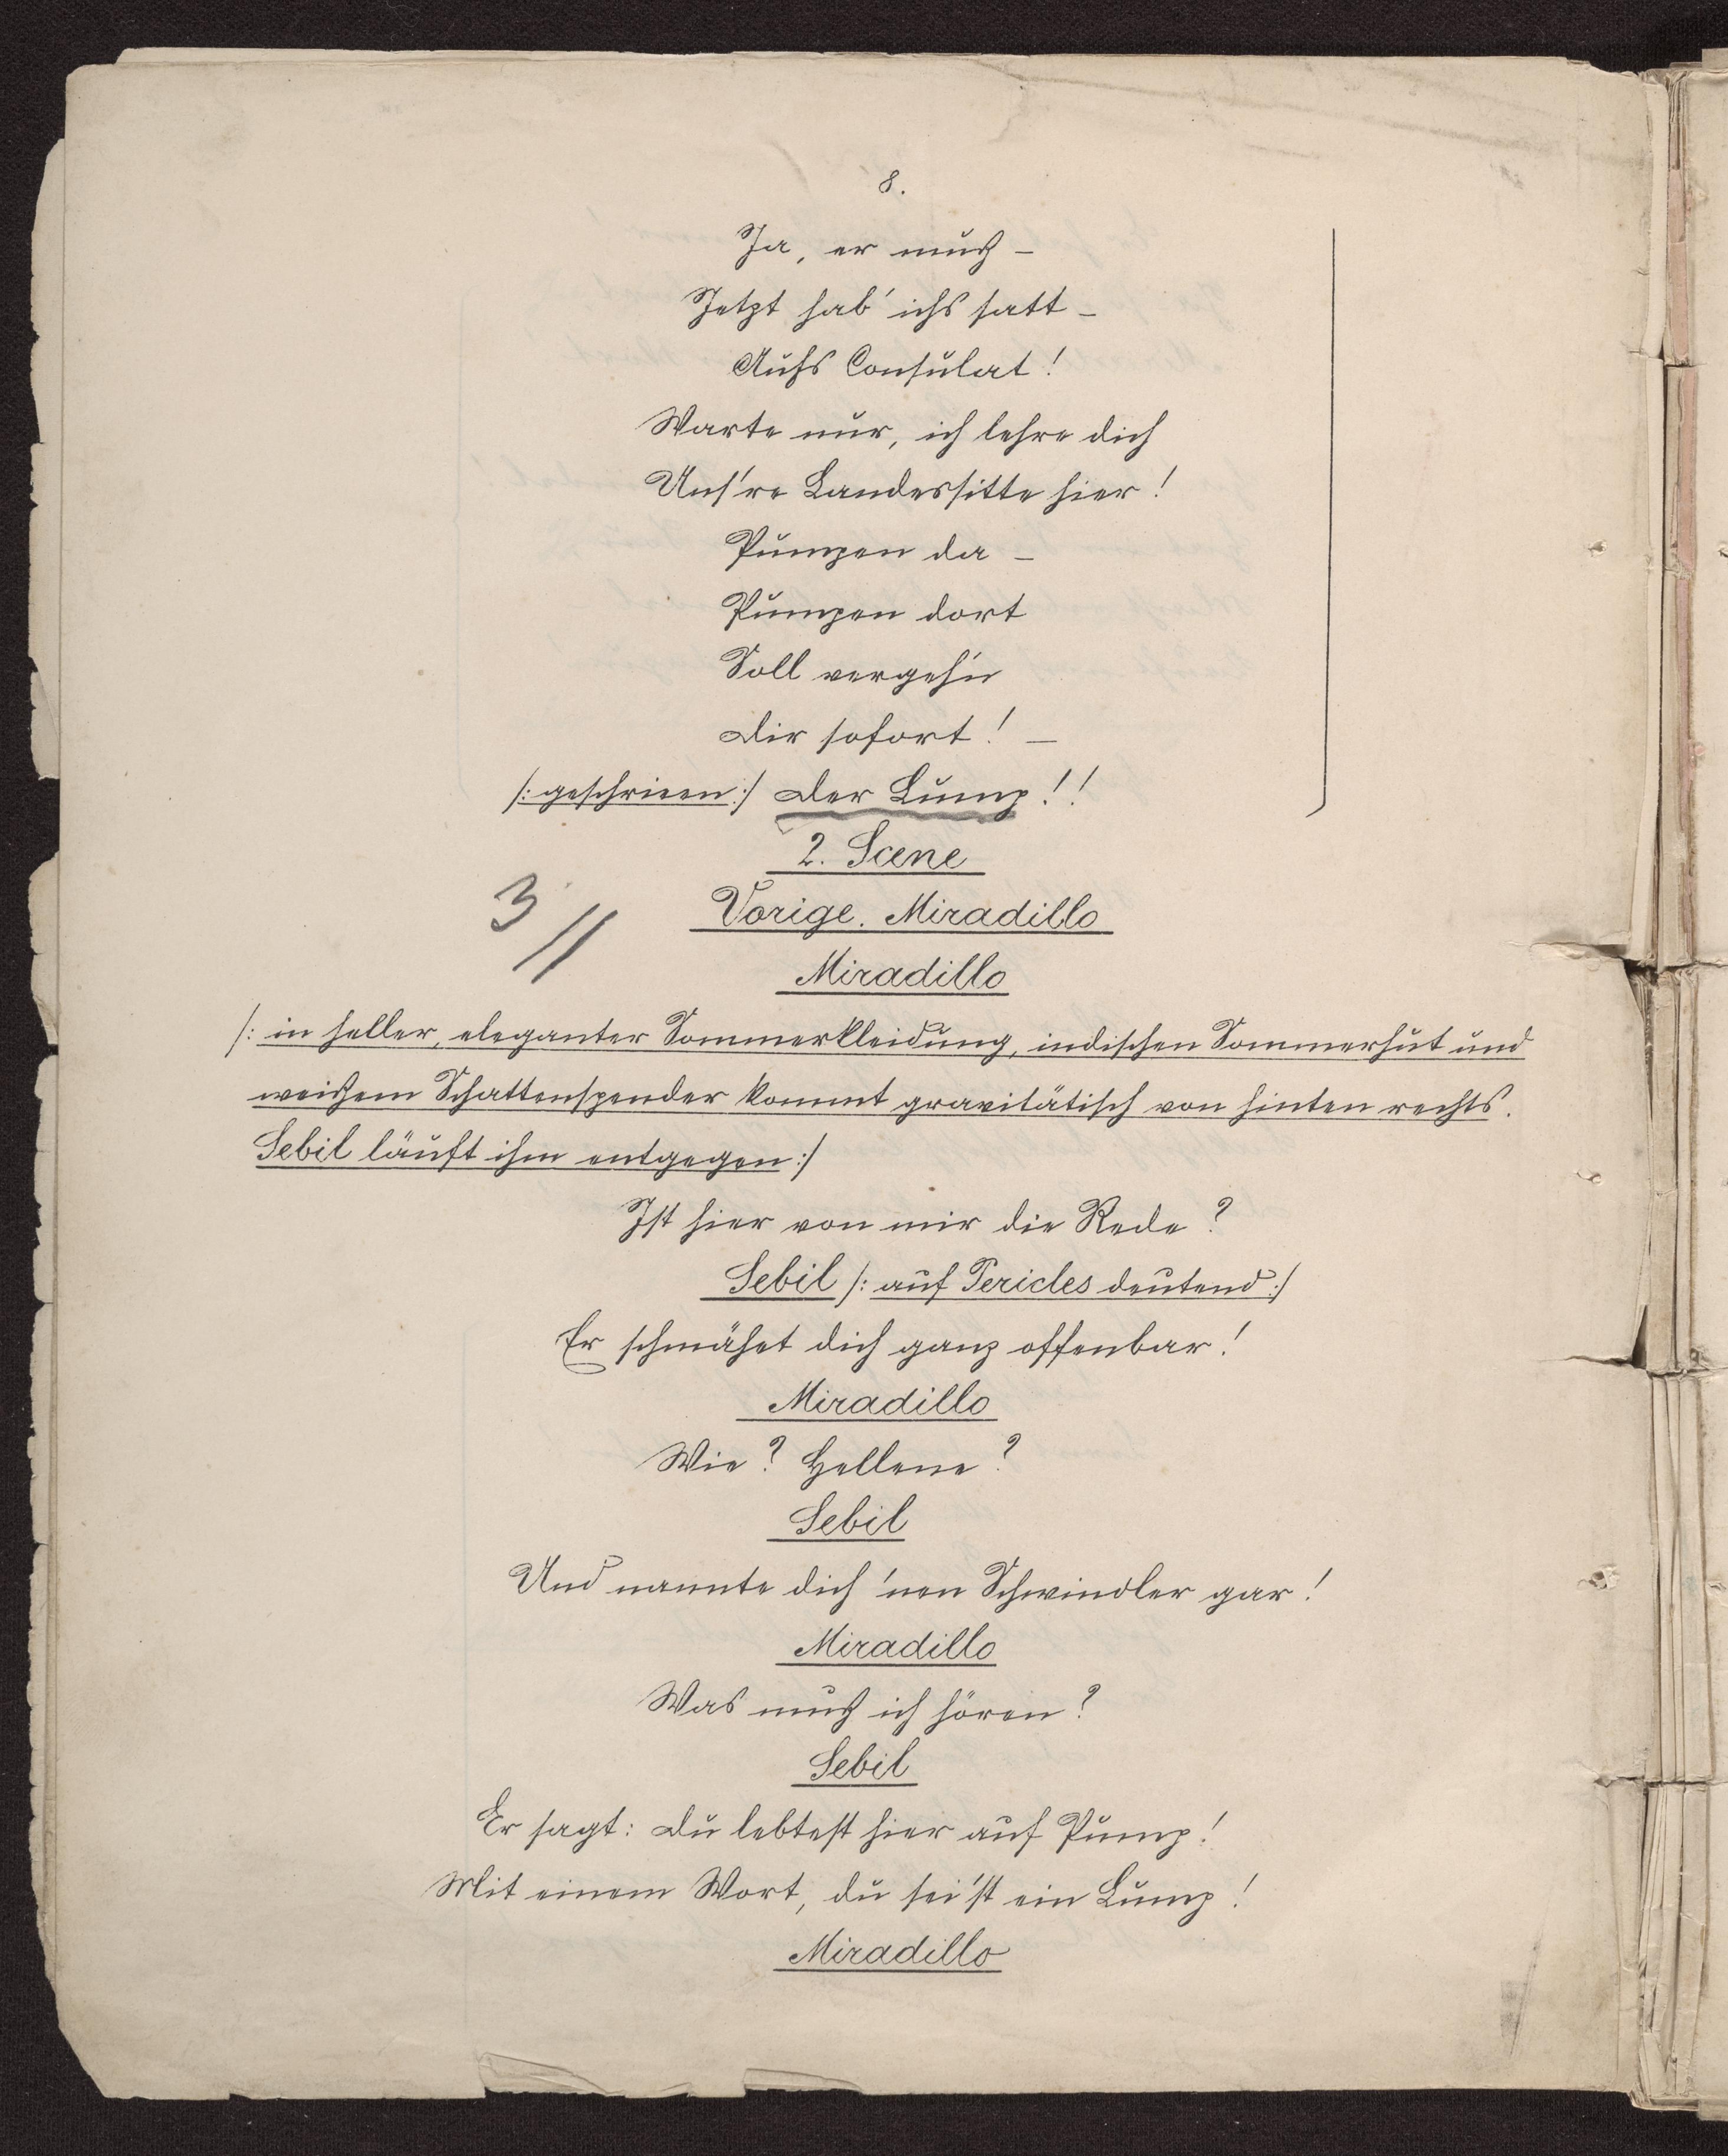 8.
Ja, er muß –
Jetzt hab' ichs satt –
Aufs Consulat!
Warte nur, ich lehre dich
Uns're Landessitte hier!
Pumpen da –
Pumpen dort
Soll vergeh'n
Dir sofort! –
/: geschrieen :/ Der Lump!!
2. Scene
3 //
Vorige. Miradillo
Miradillo
/: in heller, eleganter Sommerkleidung, indischen Sommerhut und
weißem Schattenspender kommt gravitätisch von hinten rechts.
Sebil läuft ihm entgegen :/
Ist hier von mir die Rede?
Sebil /: auf Pericles deutend :/
Er schmähet dich ganz offenbar!
Miradillo
Wie? Hellene?
Sebil
Und nannte dich 'nen Schwindler gar!
Miradillo
Was muß ich hören?
Sebil
Er sagt: du lebtest hier auf Pump!
Mit einem Wort, du sei'st ein Lump!
Miradillo